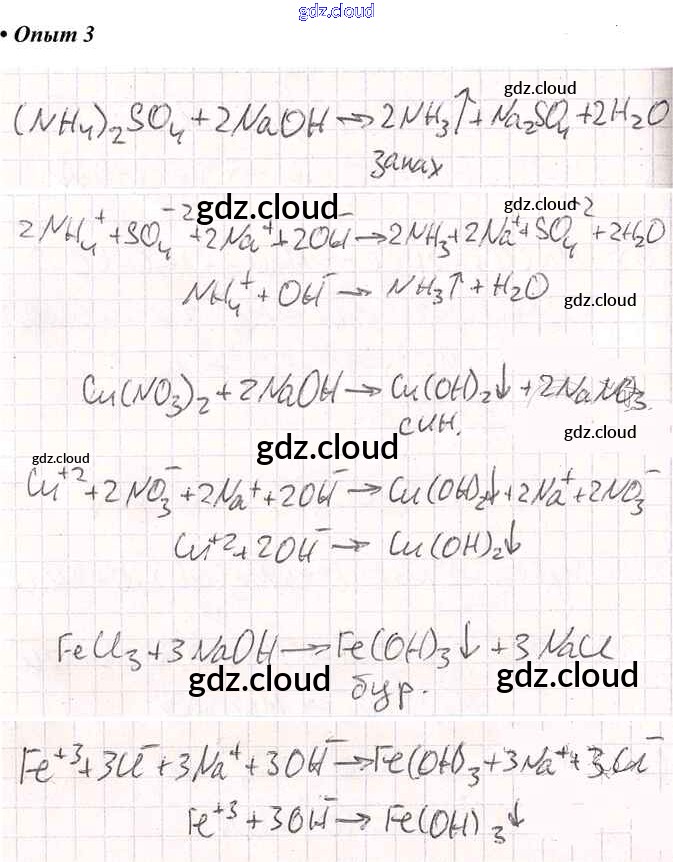 gdz.cloud
• Опыт 3
gdz.cloud
(NH₄)₂SO₄ + 2NaOH → 2NH₃↑ + Na₂SO₄ + 2H₂O
запах
gdz.cloud gdz.cloud
2NH₄⁺ + SO₄⁻² + 2Na⁺ + 2OH⁻ → 2NH₃ + 2Na⁺ + SO₄⁺² + 2H₂O
NH₄⁺ + OH⁻ → NH₃↑ + H₂O
gdz.cloud
Cu(NO₃)₂ + 2NaOH → Cu(OH)₂↓ + 2NaNO₃
син.
gdz.cloud
gdz.cloud
gdz.cloud
Cu⁺² + 2NO₃⁻ + 2Na⁺ + 2OH⁻ → Cu(OH)₂↓ + 2Na⁺ + 2NO₃⁻
Cu⁺² + 2OH⁻ → Cu(OH)₂↓
FeCl₃ + 3NaOH → Fe(OH)₃↓ + 3NaCl
бур.
gdz.cloud gdz.cloud
Fe⁺³ + 3Cl⁻ + 3Na⁺ + 3OH⁻ → Fe(OH)₃ + 3Na⁺ + 3Cl⁻
Fe⁺³ + 3OH⁻ → Fe(OH)₃↓